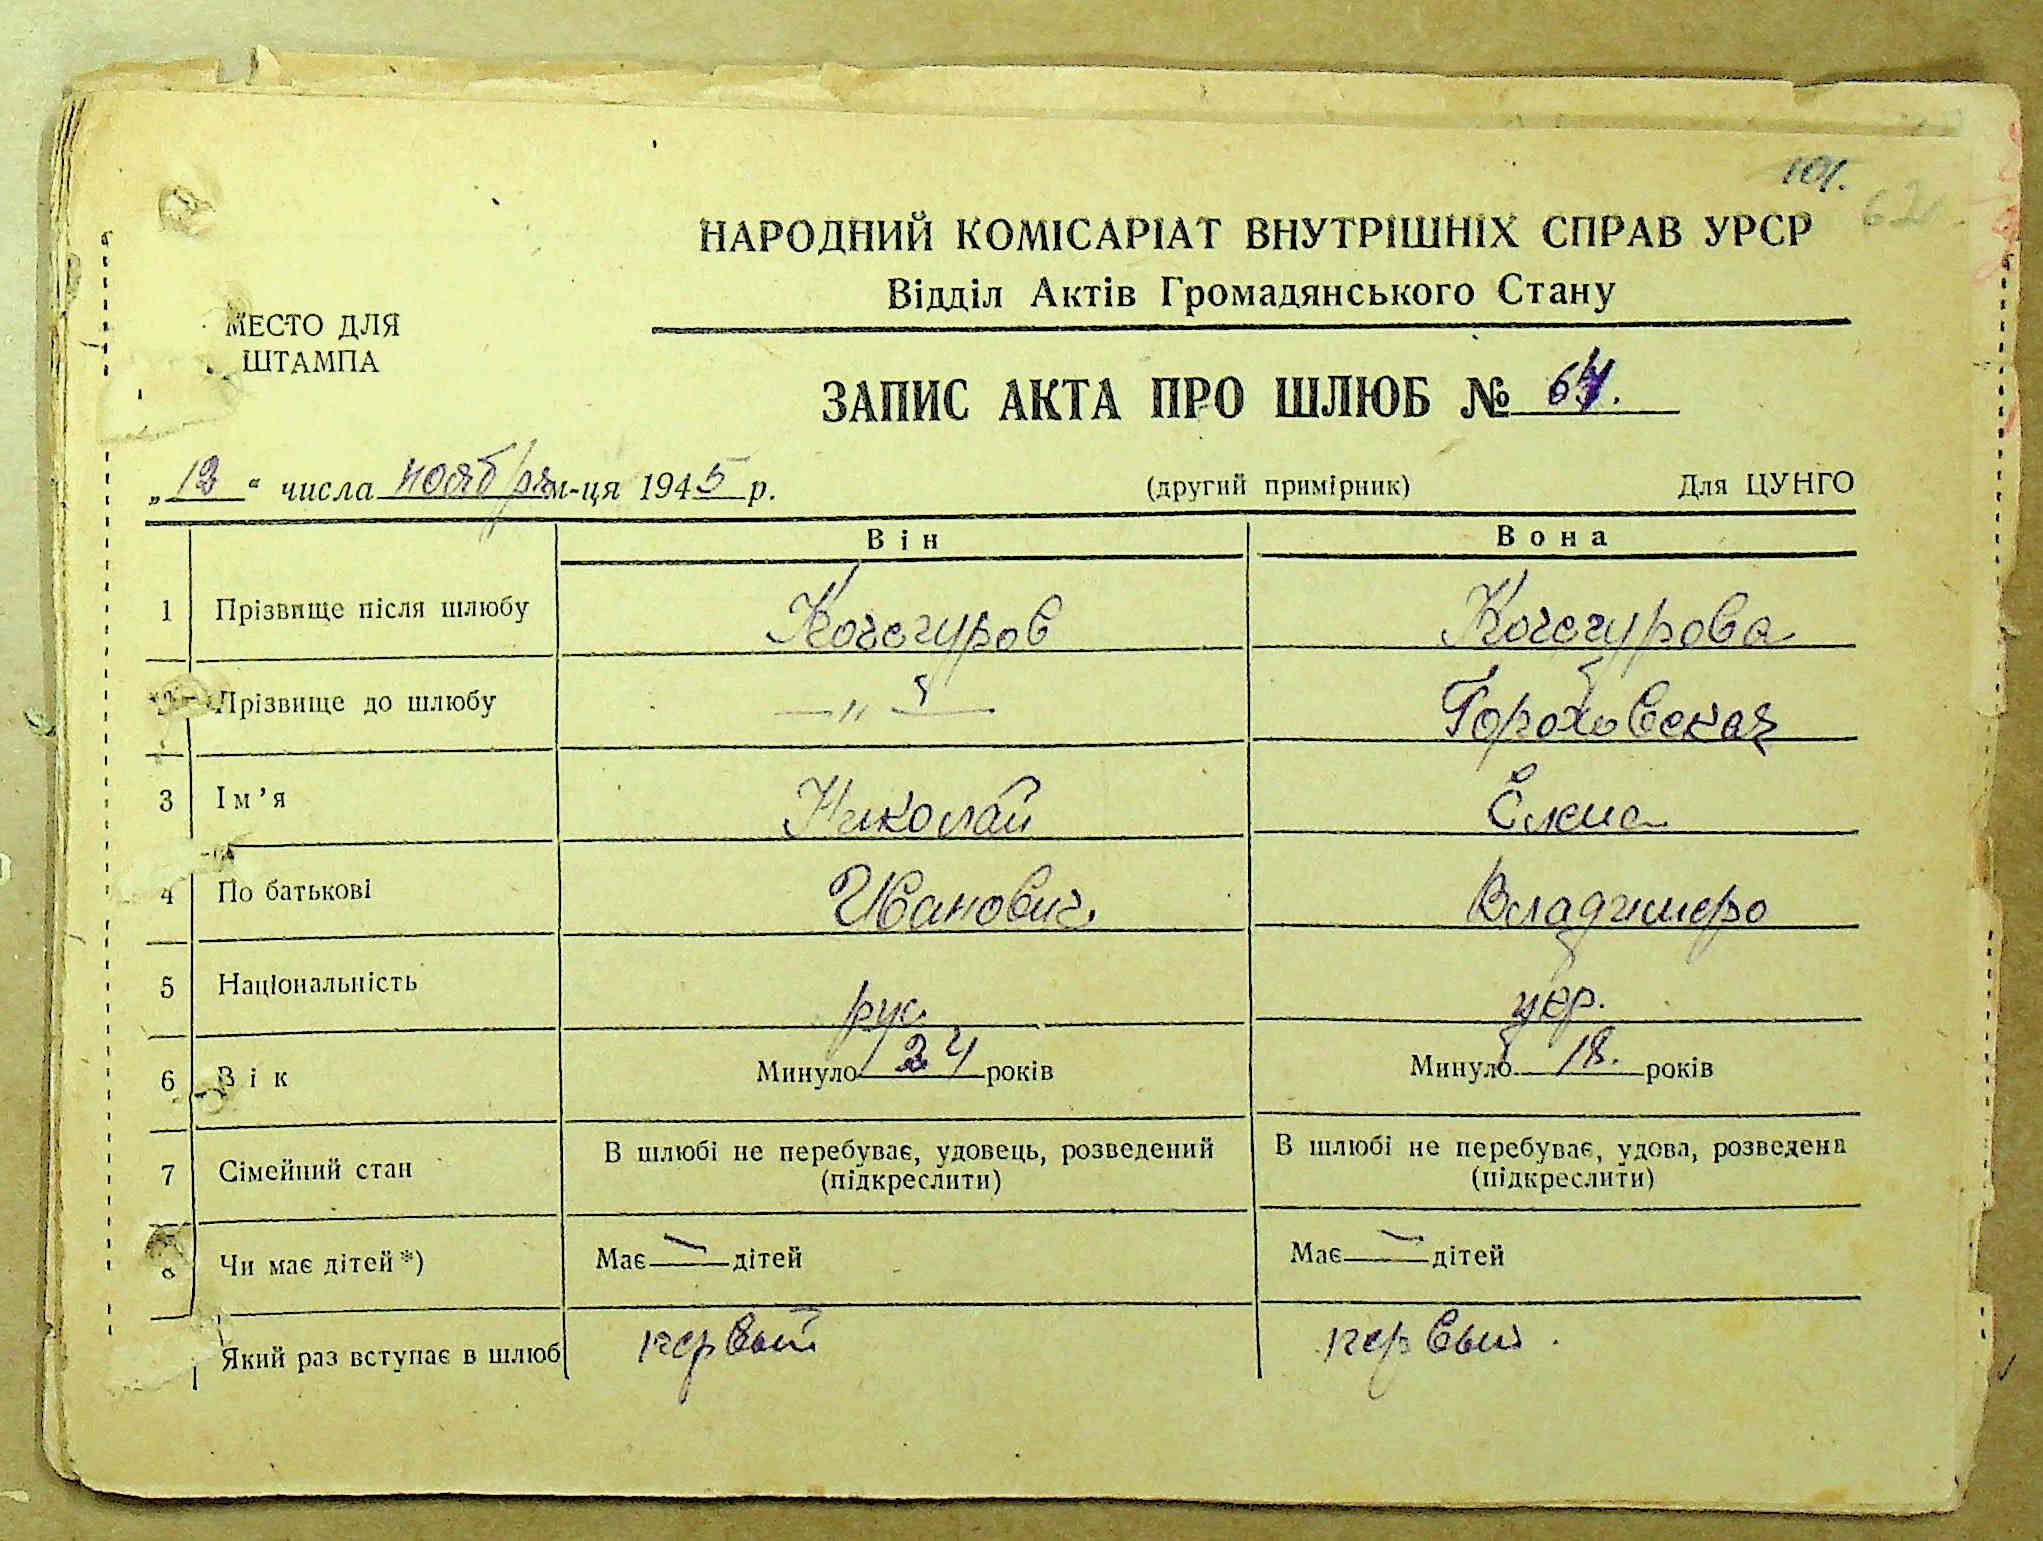 101.
62
НАРОДНИЙ КОМІСАРІАТ ВНУТРІШНІХ СПРАВ УРСР
Відділ Актів Громадянського Стану
МЕСТО ДЛЯ
ШТАМПА
ЗАПИС АКТА ПРО ШЛЮБ № 64.
„ 12 " числа ноября м-ця 1945 р. (другий примірник) Для ЦУНГО
Він Вона
1 Прізвище після шлюбу Кочегуров Кочегурова
2 Прізвище до шлюбу —„— Гороховская
3 Ім’я Николай Елена
4 По батькові Иванович. Владимеро
5 Національність рус. укр.
6 Вік Минуло 24 років Минуло 18. років
7 Сімейний стан В шлюбі не перебуває, удовець, розведений (підкреслити) В шлюбі не перебуває, удова, розведена (підкреслити)
Чи має дітей*) Має — дітей Має — дітей
Який раз вступає в шлюб первый первый.